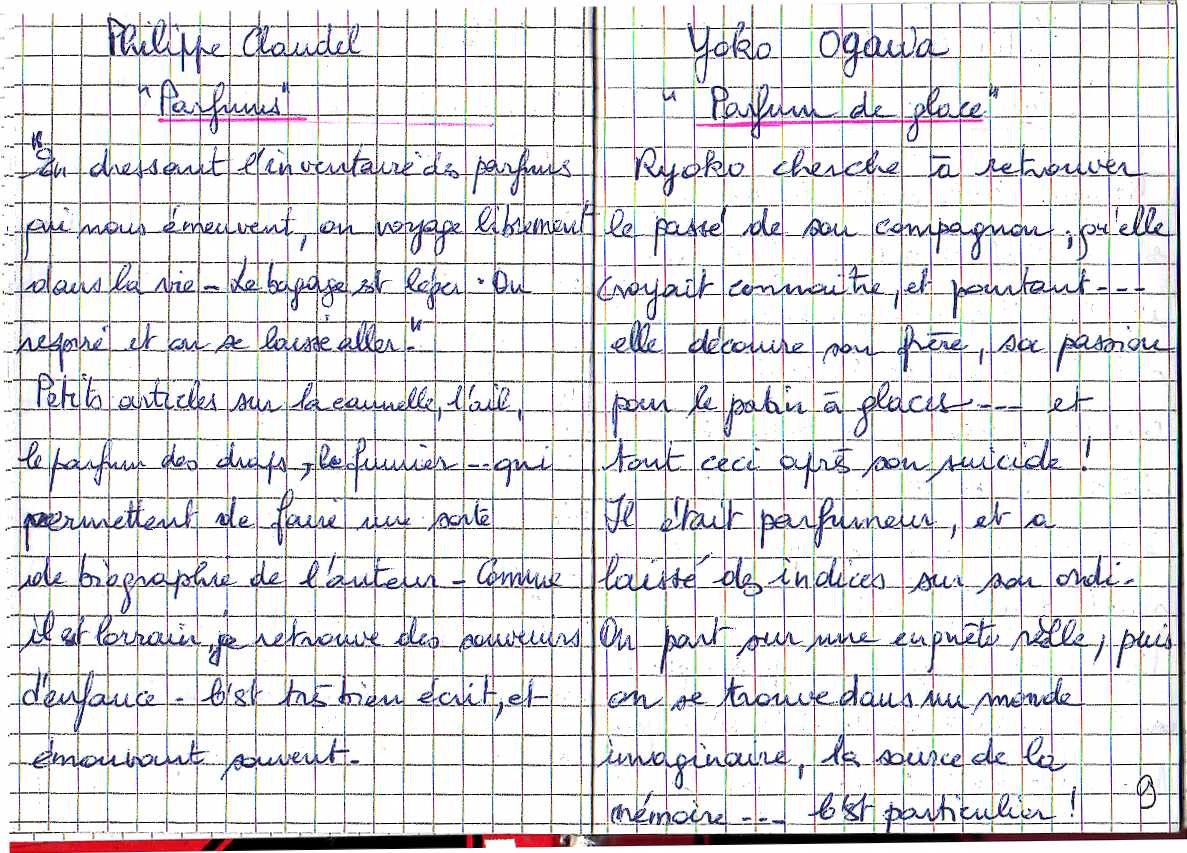 Philippe Claudel
"Parfums"
"En dressant l'inventaire des parfums
qui nous émeuvent, on voyage librement
dans la vie - Le bagage est léger . On
respire et on se laisse aller."
Petits articles sur la cannelle, l'ail,
le parfum des draps, le fumier -- qui
permettent de faire une sorte
de biographie de l'auteur - Comme
il est lorrain, je retrouve des souvenirs
d'enfance - C'est très bien écrit, et
émouvant souvent.
Yoko Ogawa
"Parfum de glace"
Ryoko cherche à retrouver
le passé de son compagnon, qu'elle
croyait connaitre, et pourtant ---
elle découvre son frère, sa passion
pour le patin à glaces --- et
tout ceci après son suicide !
Il était parfumeur, et a
laissé des indices sur son ordi.
On part sur une enquête réelle, puis
on se trouve dans un monde
imaginaire, la source de la
mémoire --- C'est particulier !
9